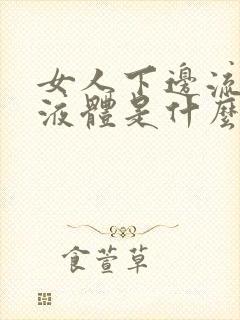 女人下邊流
液體是什麼
食萱草